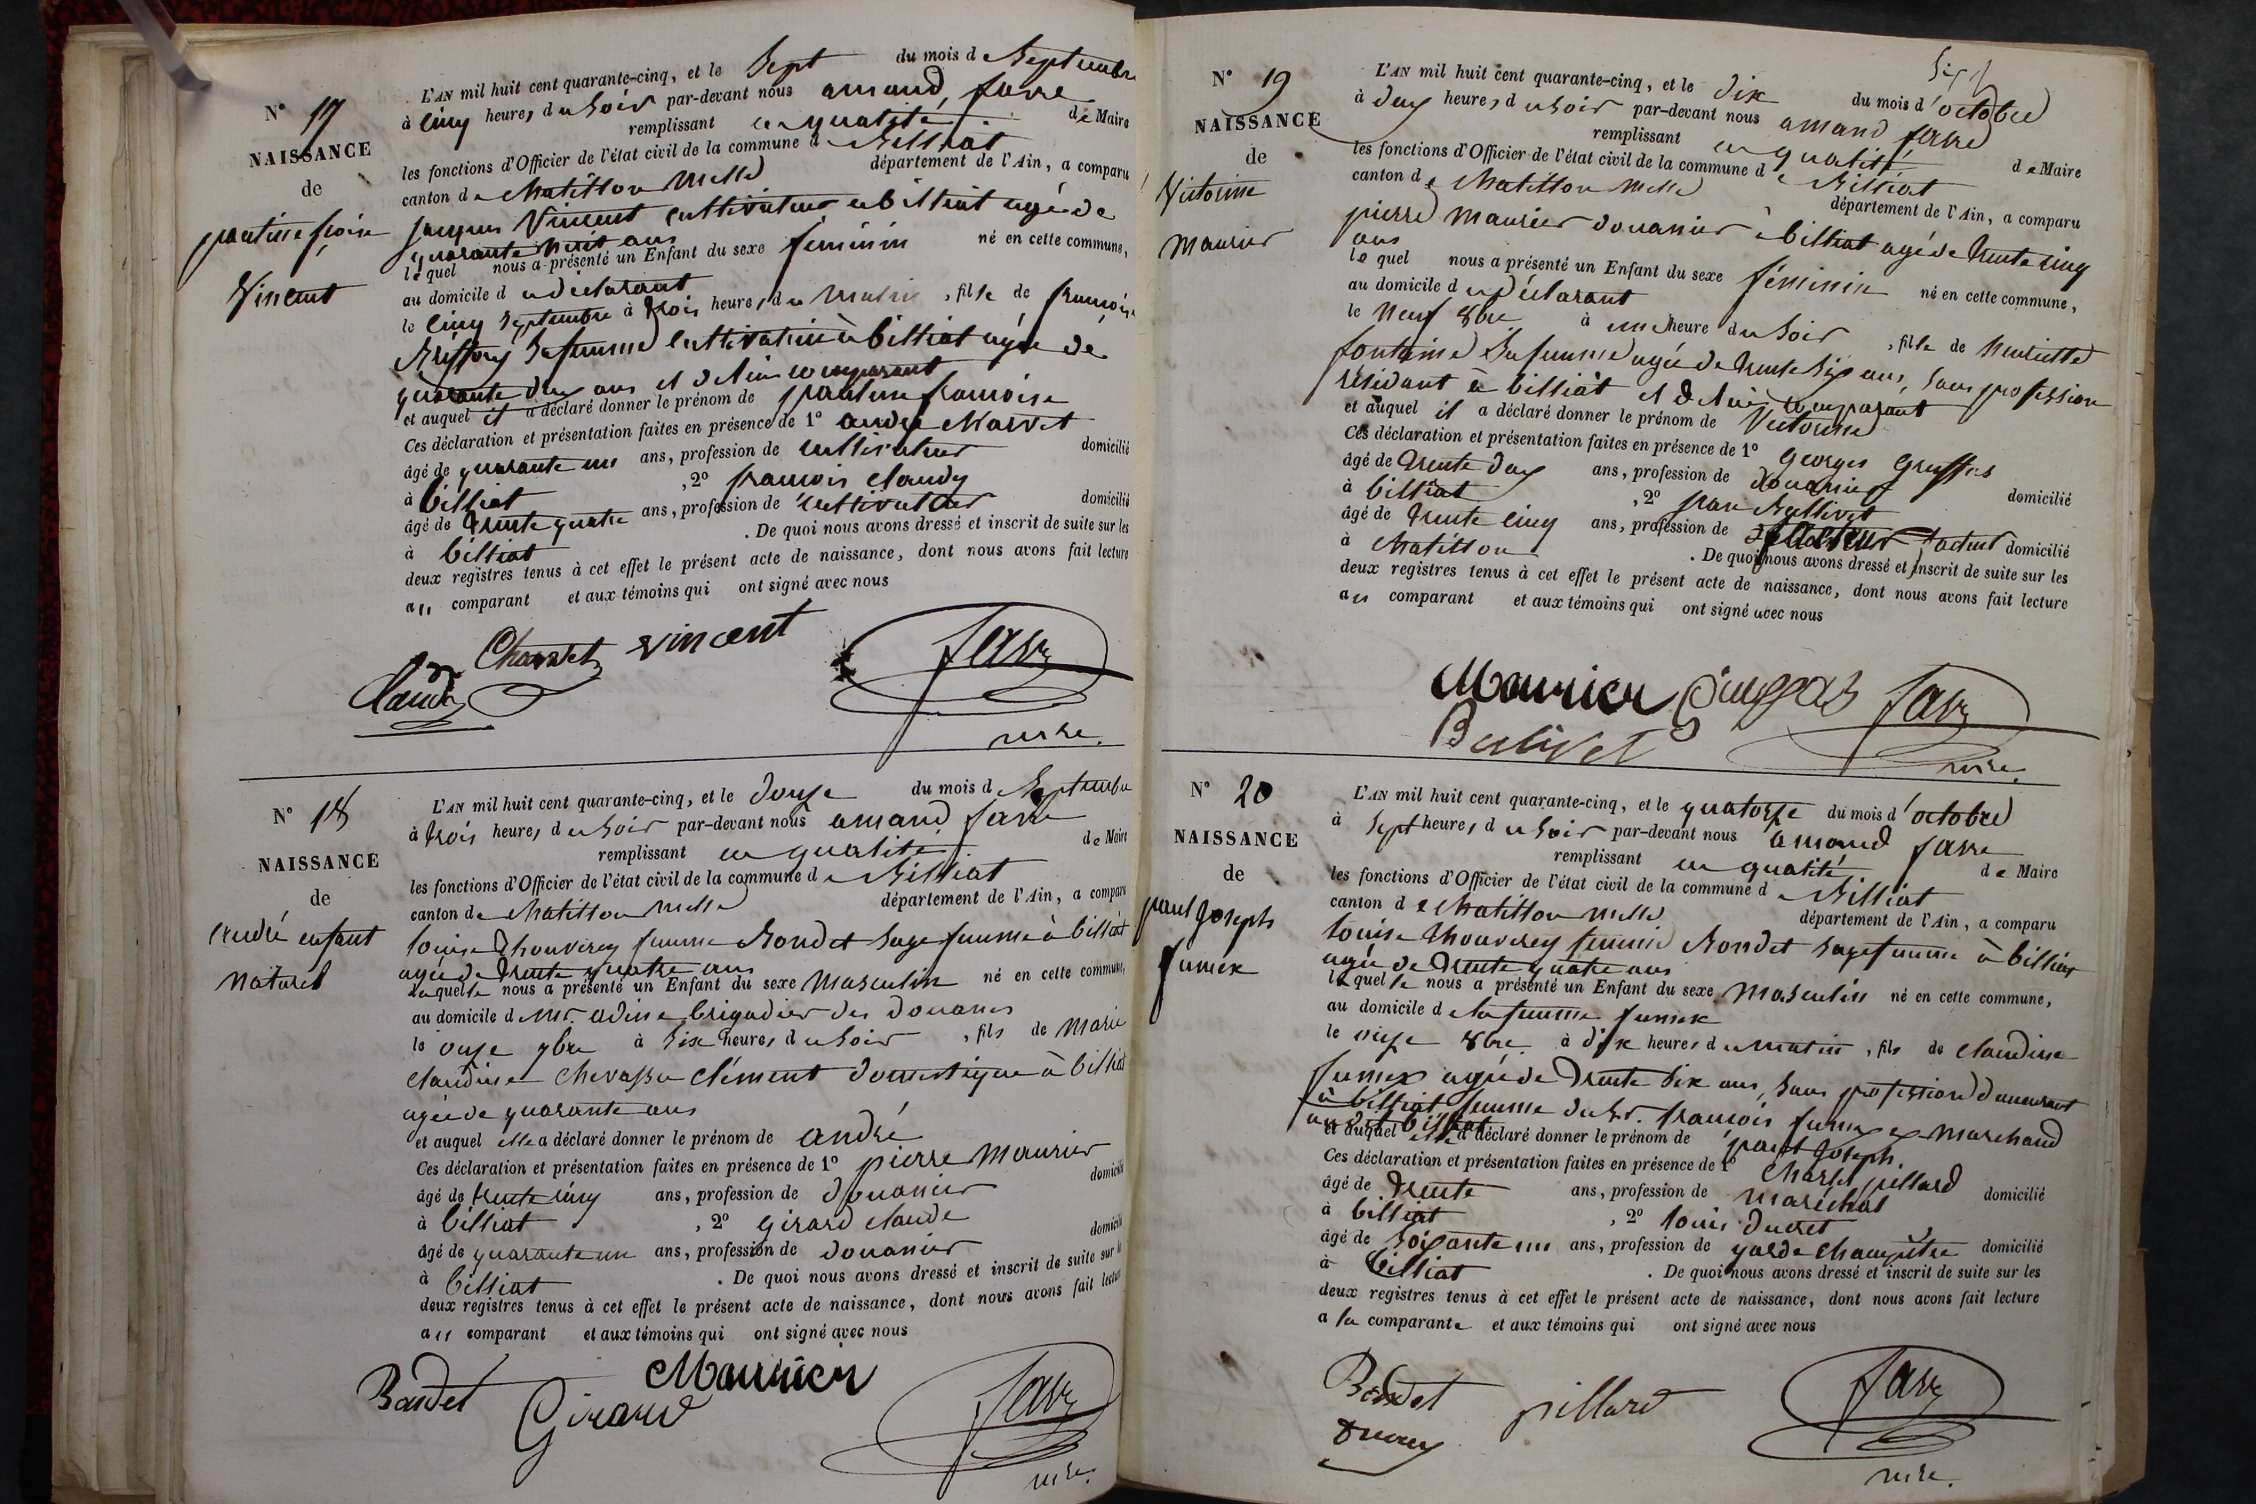 N° 17
NAISSANCE
de
pauline françoise
Vincent
L'AN mil huit cent quarante-cinq, et le Sept du mois de Septembre
à cinq heures du Soir par-devant nous amand favre
remplissant en qualité de Maire
les fonctions d'Officier de l'état civil de la commune de Billiat
canton de Chatillon Mlle département de l'Ain, a comparu
jacques Vincent cultivateur à billiat agé de
quarante huit ans
lequel nous a présenté un Enfant du sexe féminin né en cette commune,
au domicile du déclarant
le cinq Septembre à trois heures du Matin, fille de françoise
sa femme cultivatrice à billiat agée de
quarante deux ans et de lui comparant
et auquel il a déclaré donner le prénom de pauline françoise
Ces déclaration et présentation faites en présence de 1° andré Charvet
âgé de quarante un ans, profession de cultivateur domicilié
à billiat, 2° françois claudy
âgé de trente quatre ans, profession de cultivateur domicilié
à billiat. De quoi nous avons dressé et inscrit de suite sur les
deux registres tenus à cet effet le présent acte de naissance, dont nous avons fait lecture
au comparant et aux témoins qui ont signé avec nous
Charvet vincent favre
Claudy
mre.
N° 18
NAISSANCE
de
andré enfant
naturel
L'AN mil huit cent quarante-cinq, et le douze du mois de Septembre
à trois heures du Soir par-devant nous amand favre
remplissant en qualité de Maire
les fonctions d'Officier de l'état civil de la commune de Billiat
canton de Chatillon Mlle département de l'Ain, a comparu
louise thouverey femme Bondet Sage femme à billiat
agée de trente quatre ans
laquelle nous a présenté un Enfant du sexe Masculin né en cette commune,
au domicile de Mr. adine brigadier des douanes
le onze 7bre à Six heures du Soir, fils de Marie
claudine chevassu clément domestique à billiat
agée de quarante ans
et auquel elle a déclaré donner le prénom de andré
Ces déclaration et présentation faites en présence de 1° pierre Maurier
âgé de trente cinq ans, profession de douanier domicilié
à billiat, 2° girard claude
âgé de quarante un ans, profession de douanier domicilié
à billiat. De quoi nous avons dressé et inscrit de suite sur les
deux registres tenus à cet effet le présent acte de naissance, dont nous avons fait lecture
au comparant et aux témoins qui ont signé avec nous
Bondet Girard Maurier favre
mre.
Six
N° 19
NAISSANCE
de
Victorine
Maurier
L'AN mil huit cent quarante-cinq, et le dix du mois d'octobre
à deux heures du Soir par-devant nous amand favre
remplissant en qualité de Maire
les fonctions d'Officier de l'état civil de la commune de Billiat
canton de Chatillon Mlle département de l'Ain, a comparu
pierre Maurier douanier à billiat agé de trente cinq
ans
lequel nous a présenté un Enfant du sexe féminin né en cette commune,
au domicile du déclarant
le Neuf 8bre à une heure du Soir, fille de henriette
fontaine Sa femme agée de trente Six ans, Sans profession
résidant à billiat et de lui comparant
et auquel il a déclaré donner le prénom de Victorine
Ces déclaration et présentation faites en présence de 1° georges
âgé de trente deux ans, profession de douanier domicilié
à billiat, 2° jean Bellivet
âgé de trente cinq ans, profession de facteur domicilié
à Chatillon. De quoi nous avons dressé et inscrit de suite sur les
deux registres tenus à cet effet le présent acte de naissance, dont nous avons fait lecture
au comparant et aux témoins qui ont signé avec nous
Maurier favre
mre.
N° 20
NAISSANCE
de
paul joseph
fumex
L'AN mil huit cent quarante-cinq, et le quatorze du mois d'octobre
à Sept heures du Soir par-devant nous amand favre
remplissant en qualité de Maire
les fonctions d'Officier de l'état civil de la commune de Billiat
canton de Chatillon Mlle département de l'Ain, a comparu
louise thouverey femme Bondet Sage femme à billiat
agée de trente quatre ans
laquelle nous a présenté un Enfant du sexe Masculin né en cette commune,
au domicile de la femme fumex
le 8bre à dix heures du matin, fils de claudine
fumex agée de trente Six ans, Sans profession demeurant
à billiat femme du Sr. françois fumex Marchand
audit billiat
et auquel elle a déclaré donner le prénom de paul joseph.
Ces déclaration et présentation faites en présence de 1° Charles pillard
âgé de trente ans, profession de maréchal domicilié
à billiat, 2° louis ducret
âgé de Soixante un ans, profession de garde champêtre domicilié
à billiat. De quoi nous avons dressé et inscrit de suite sur les
deux registres tenus à cet effet le présent acte de naissance, dont nous avons fait lecture
a la comparante et aux témoins qui ont signé avec nous
Bondet pillard favre
mre.